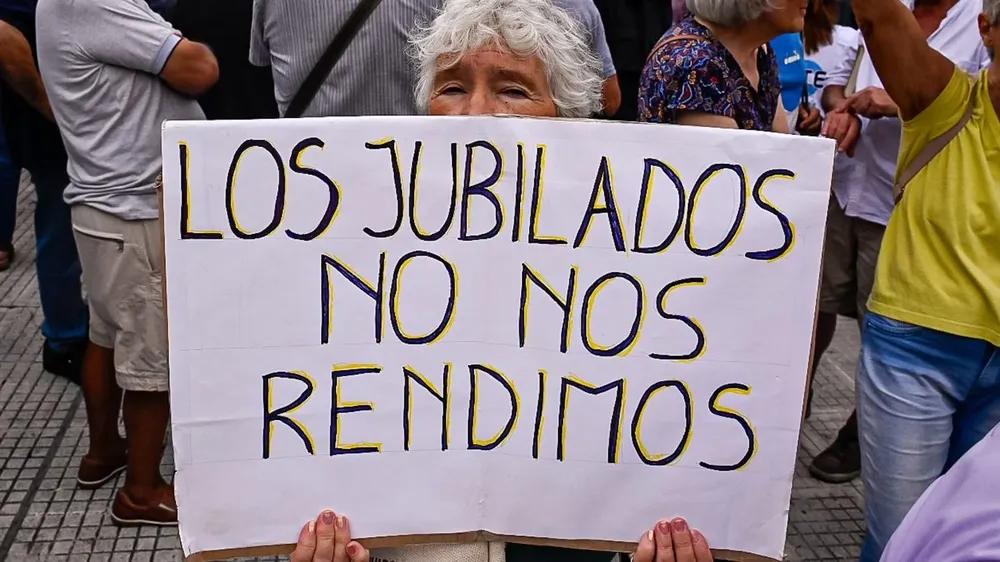 LOS JUBILADOS
NO NOS
RENDIMOS